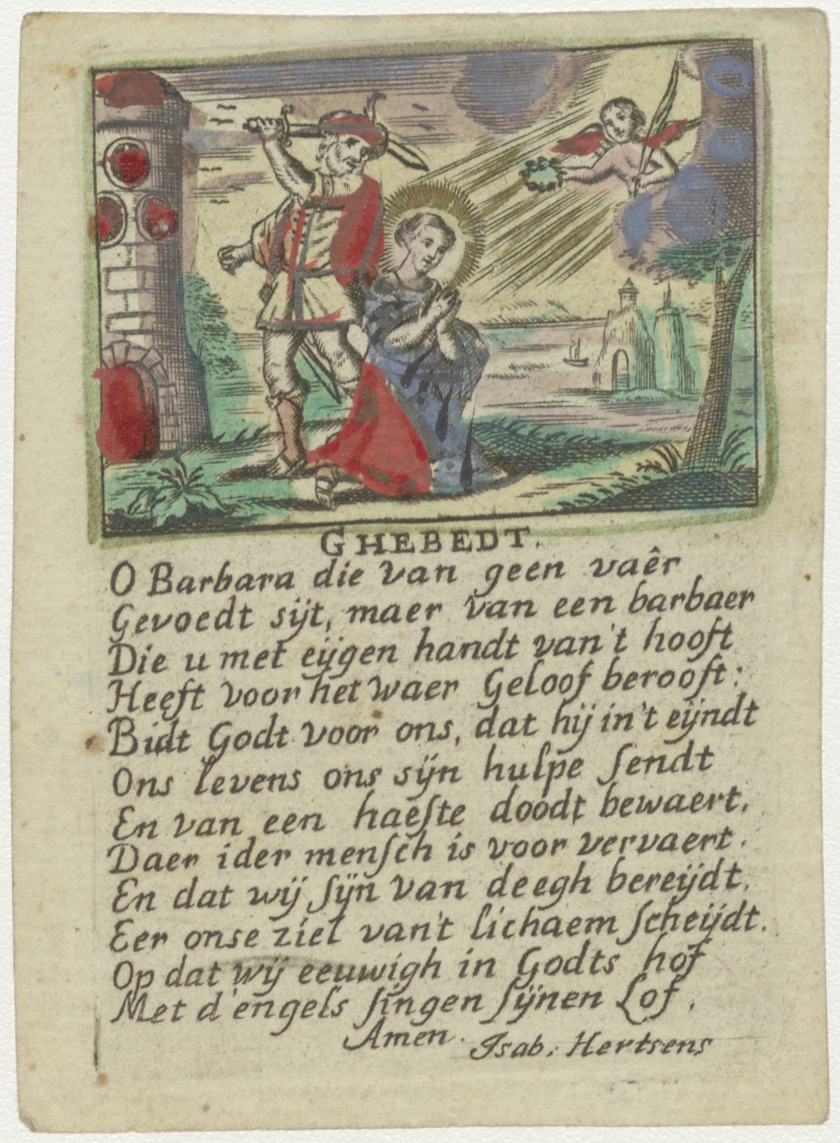 GHEBEDT.
O Barbara die van geen vaêr
Gevoedt sijt, maer van een barbaer
Die u met eijgen handt van't hooft
Heeft voor het waer Geloof berooft:
Bidt Godt voor ons, dat hij in't eijndt
Ons levens ons sijn hulpe ſendt
En van een haeſte doodt bewaert,
Daer ider menſch is voor vervaert.
En dat wij ſijn van deegh bereijdt,
Eer onse ziel van't lichaem ſcheijdt.
Op dat wij eeuwigh in Godts hof
Met d'engels ſingen ſijnen Lof,
Amen.
Isab. Hertsens